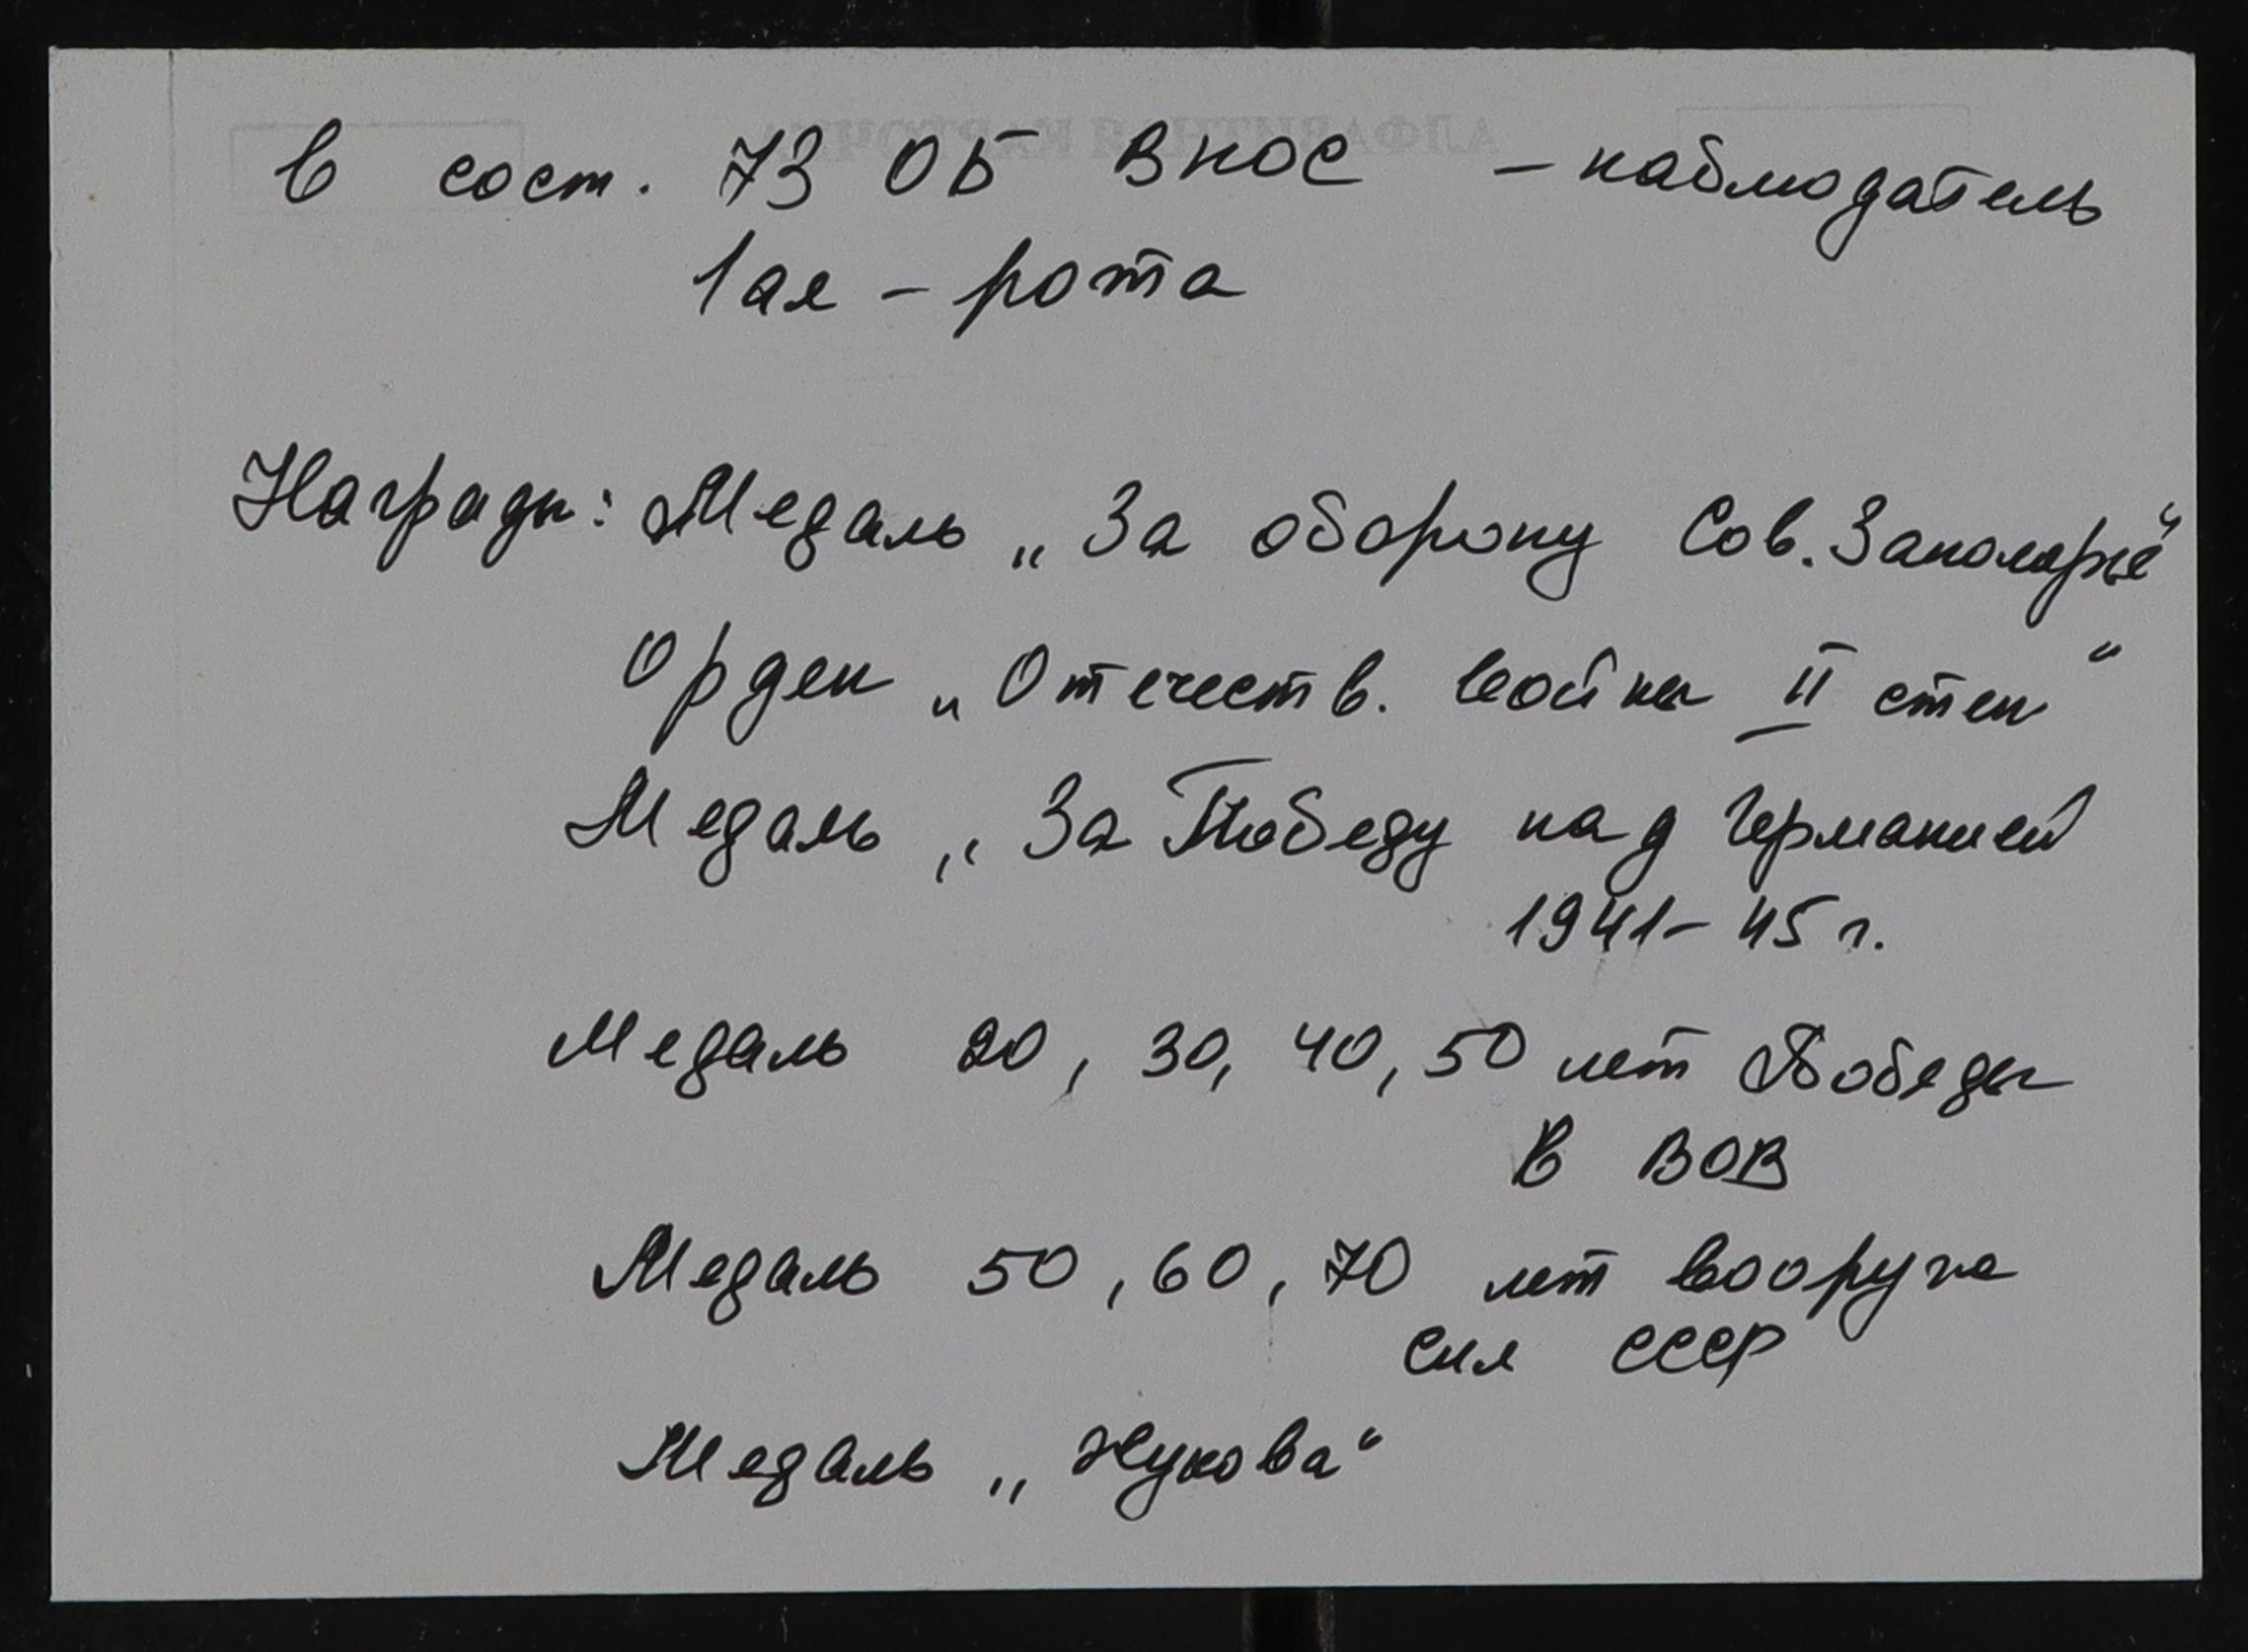 в сост. 73 ОБ ВНОС – наблюдатель
1ая – рота
Награды: Медаль „За оборону Сов. Заполярья"
Орден „Отечеств. войны II степ"
Медаль „За Победу над Германией
1941–45 г.
Медаль 20, 30, 40, 50 лет Победы
в ВОВ
Медаль 50, 60, 70 лет вооруж
сил СССР
Медаль „Жукова"